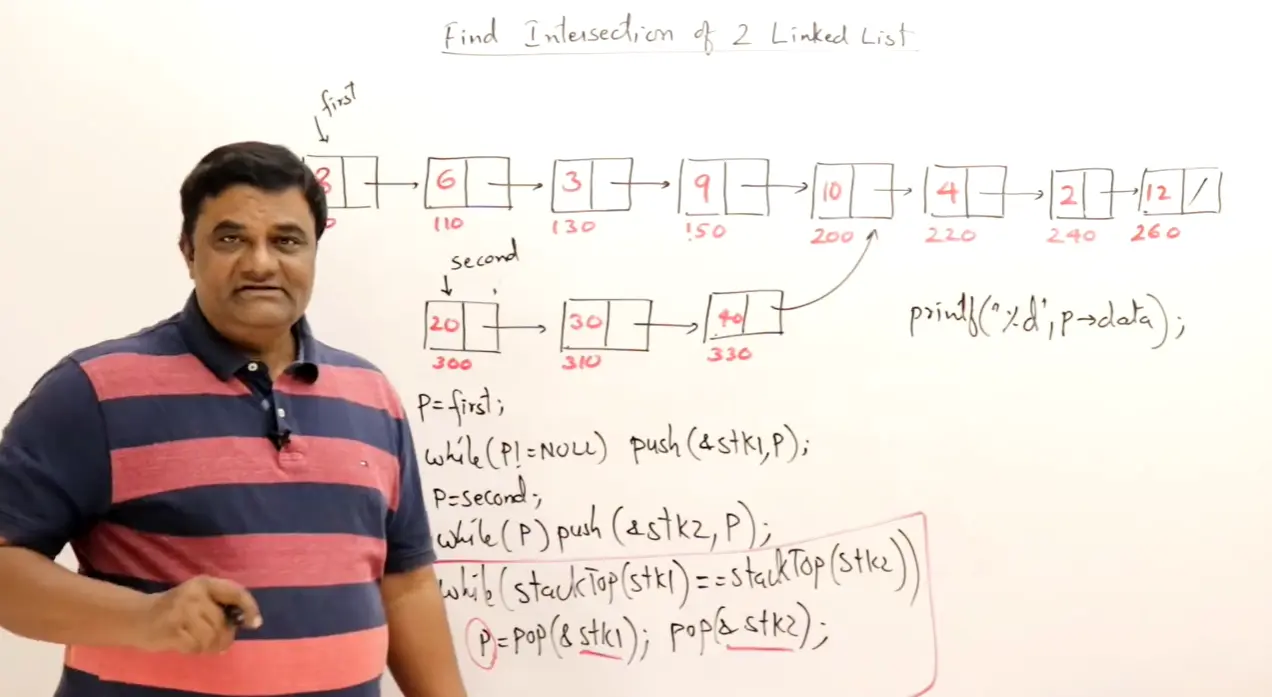 Find Intersection of 2 Linked List
first
8 6 3 9 10 4 2 12 /
110 130 150 200 220 240 260
second
20 30 40
300 310 330
printf("%d", p→data);
P=first;
while(P!=NULL) push(&stk1,P);
P=second;
while(P) push(&stk2, P);
while(stackTop(stk1)==stackTop(stk2))
P=pop(&stk1); pop(&stk2);